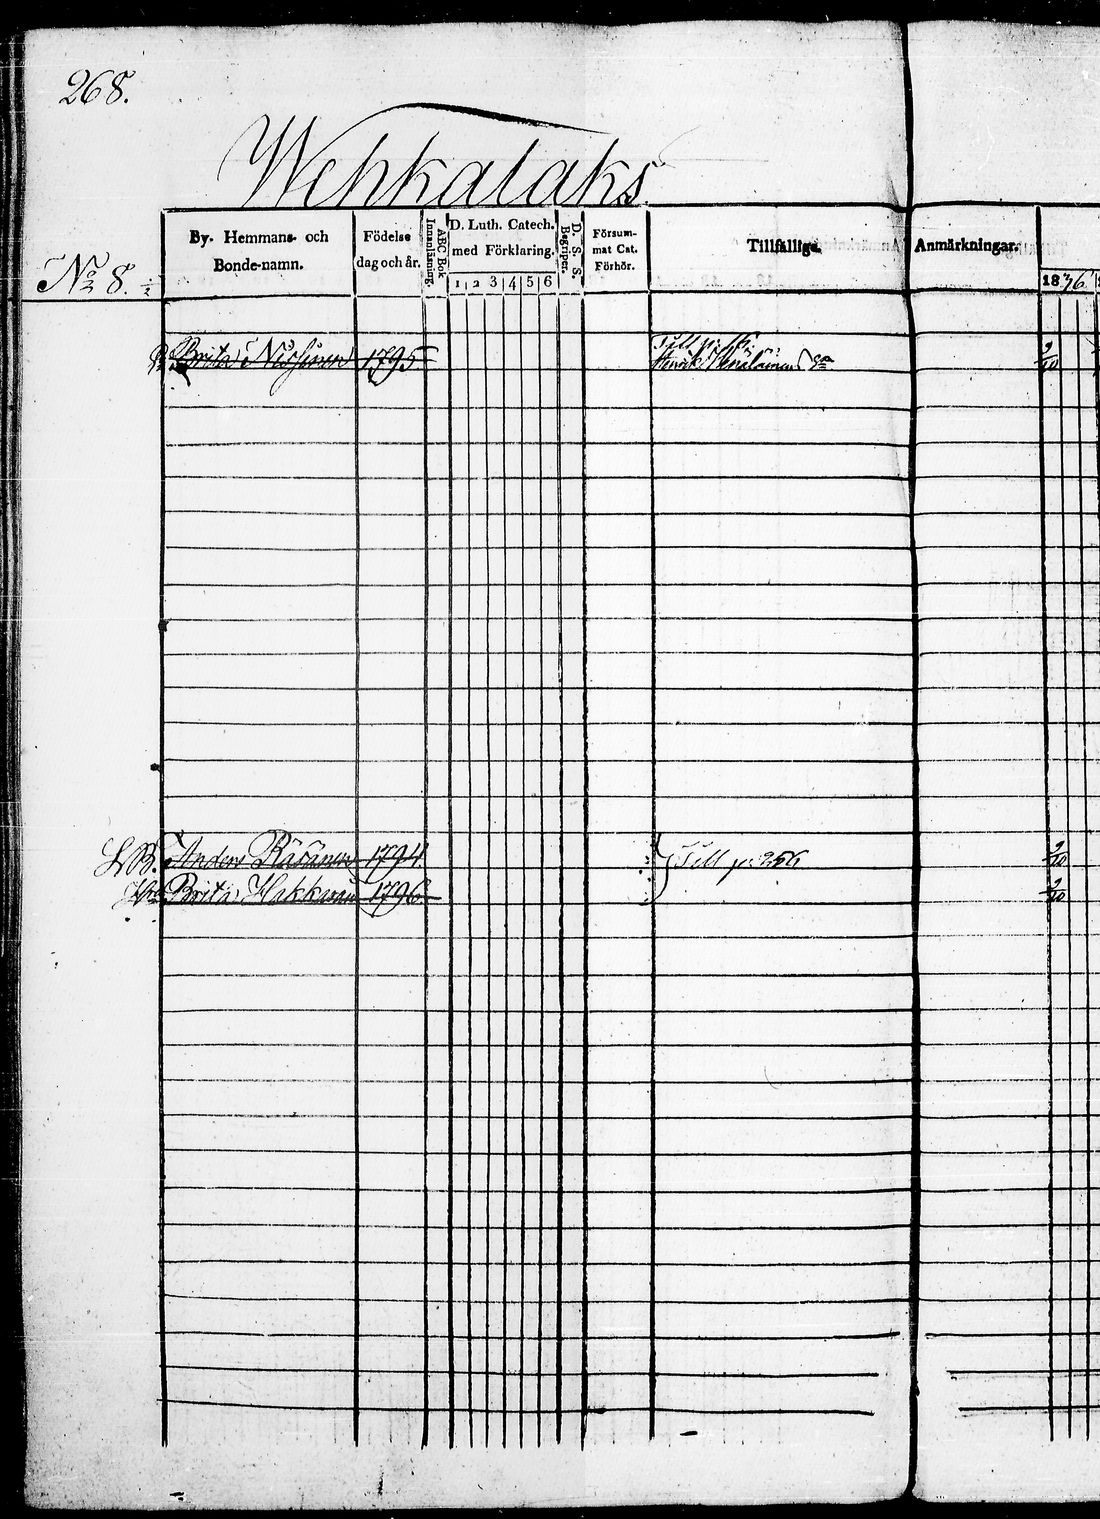 268.
Wehkalaks.
No 8. ½
By. Hemmans- och Bonde-namn.
Födelse dag och år.
ABC Bok
Innanläsning.
D. Luth. Catech. med Förklaring.
1 2 3 4 5 6
D. S. S.
Begriper.
Försummat Cat. Förhör.
Tillfällige Anmärkningar.
1836
Brita Nissinen 1795
Till p.
Henrik Venäläinen
9/10
L.B. Anders Räsänen 1794
Till p. 256
9/10
Brita Hakkarain 1796
9/10